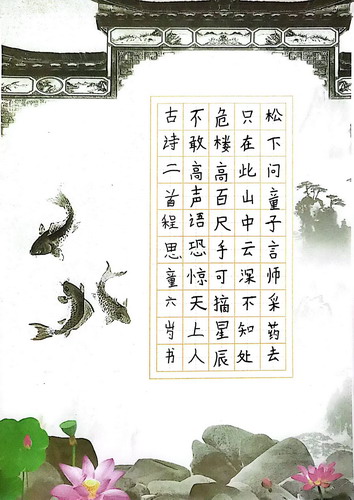 松下问童子言师采药去
只在此山中云深不知处
危楼高百尺手可摘星辰
不敢高声语恐惊天上人
古诗二首程思童六岁书